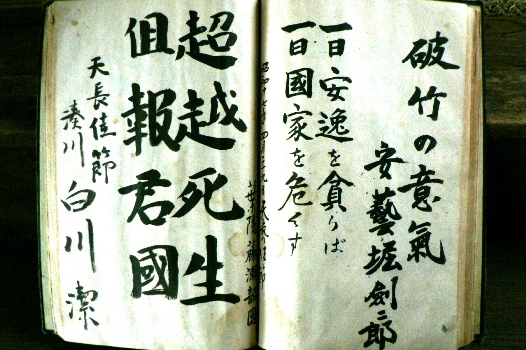 破竹の意氣
安藝堀劍二郎
一日安逸を貪らば
一日國家を危くす
超越死生
但報君國
天長佳節
湊川 白川 潔